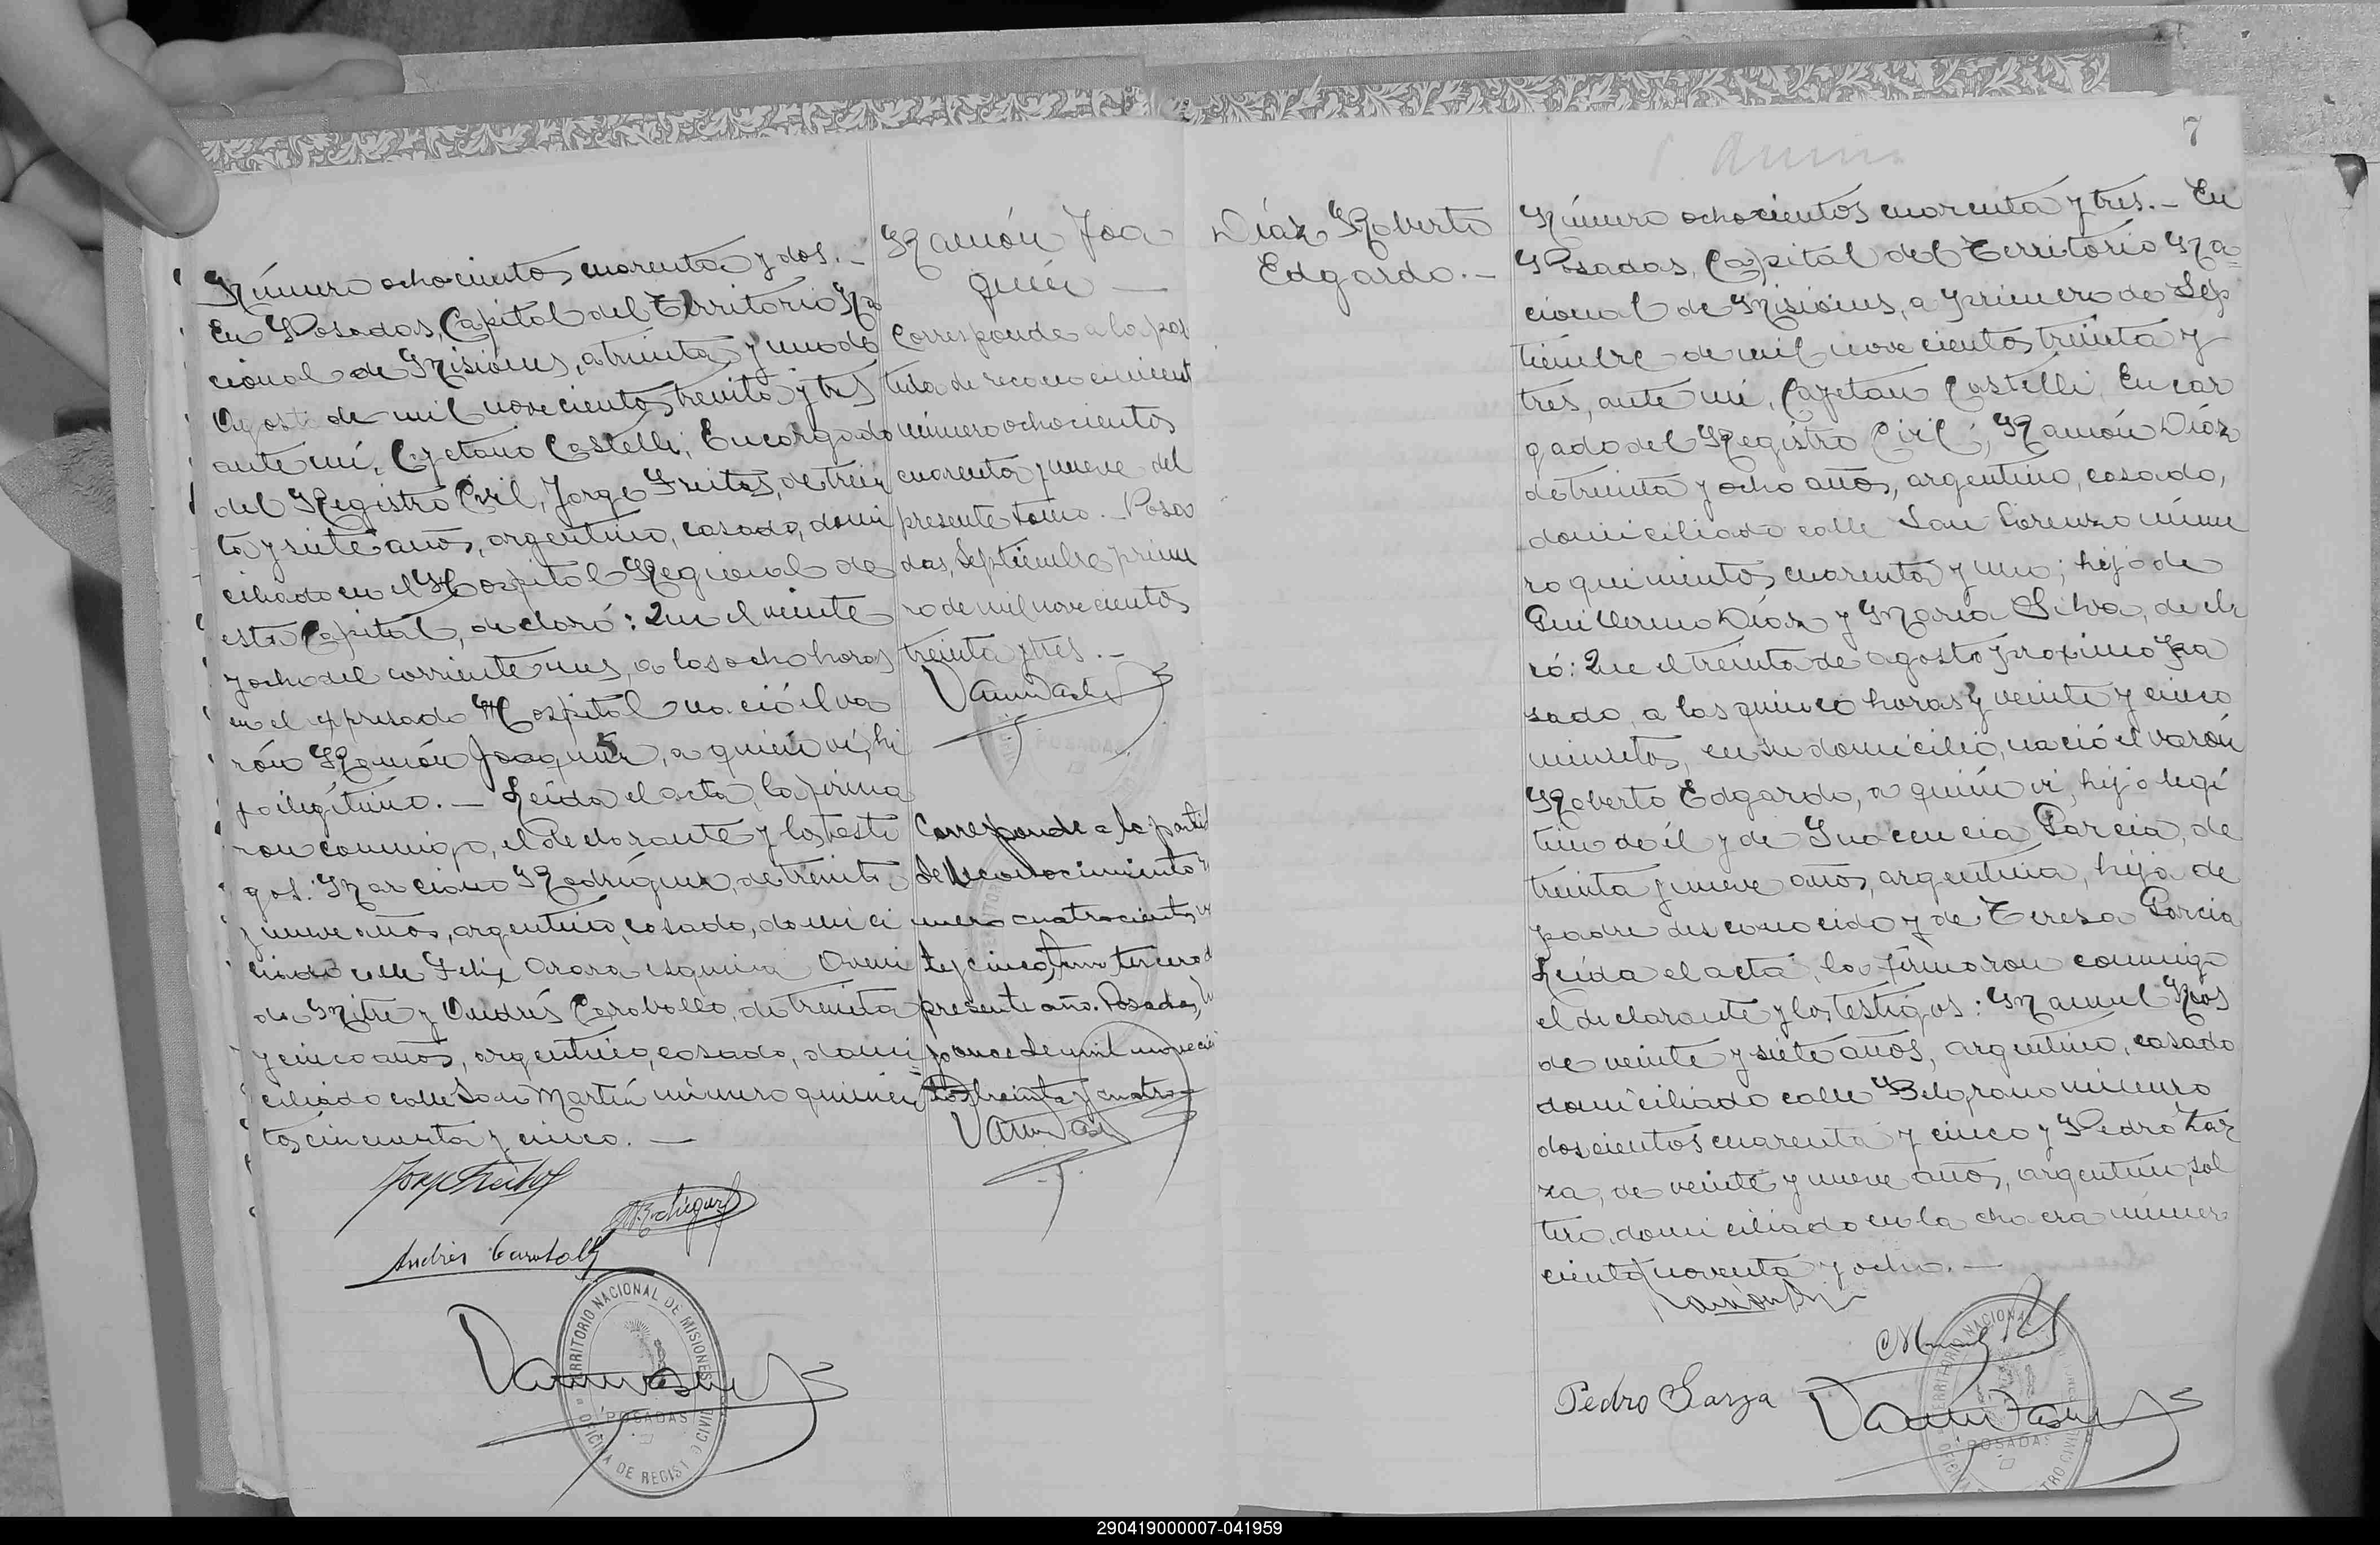 Número ochocientos cuarenta y dos.—
En Posadas, Capital del Territorio Na
cional de Misiones, a treinta y uno de
Agosto de mil novecientos treinta y tres
ante mí, Cayetano Castelli, Encargado
del Registro Civil, Jorge Freitas, de trein
ta y siete años, argentino, casado, domi
ciliado en el Hospital Regional de
esta Capital, declaró: Que el veinte
y ocho del corriente mes, a las ocho horas
en el expresado Hospital nació el va
rón Ramón Joaquín, a quien ví, hi
jo ilegítimo.— Leída el acta, la firma
ron conmigo, el declarante y los testi
gos: Marciano Rodríguez, de treinta
y nueve años, argentino, casado, domici
liado calle Felix Azara esquina Aveni
da Mitre y Andrés Caraballo, de treinta
y cinco años, argentino, casado, domi
ciliado calle San Martín número quinien
tos cincuenta y cinco.—
Andrés
TERRITORIO NACIONAL DE MISIONES
POSADAS
OFICINA DE REGISTRO CIVIL
Ramón Joa
quín —
Corresponde a la par
tida de reconocimient
número ochocientos
cuarenta y nueve del
presente tomo.— Posa
das, Septiembre prime
ro de mil novecientos
treinta y tres.—
POSADAS
Corresponde a la partid
de reconocimiento
mero cuatrocientos
te y cinco, tomo tercero d
presente año. Posadas,
once de mil noveci
tos treinta y cuatro
Díaz Roberto
Edgardo.—
7
Número ochocientos cuarenta y tres.— En
Posadas, Capital del Territorio Na
cional de Misiones, a primero de Sep
tiembre de mil novecientos treinta y
tres, ante mí, Cayetano Castelli, Encar
gado del Registro Civil; Ramón Díaz
de treinta y ocho años, argentino, casado,
domiciliado calle San Lorenzo núme
ro quinientos cuarenta y uno; hijo de
Guillermo Díaz y María Silva, decla
ró: Que el treinta de agosto proximo pa
sado, a las quince horas y veinte y cinco
minutos, en su domicilio, nació el varón
Roberto Edgardo, a quién ví, hijo legí
timo de él y de Inocencia Garcia, de
treinta y nueve años, argentina, hija de
padre desconocido y de Teresa Garcia
Leída el acta, la firmaron conmigo
el declarante y los testigos: Manuel Ríos
de veinte y siete años, argentino, casado
domiciliado calle Belgrano número
doscientos cuarenta y cinco y Pedro Zar
za, de veinte y nueve años, argentino, sol
tero, domiciliado en la chacra número
ciento noventa y ocho.—
Pedro Sarza
TERRITORIO NACIONAL
POSADAS
290419000007-041959